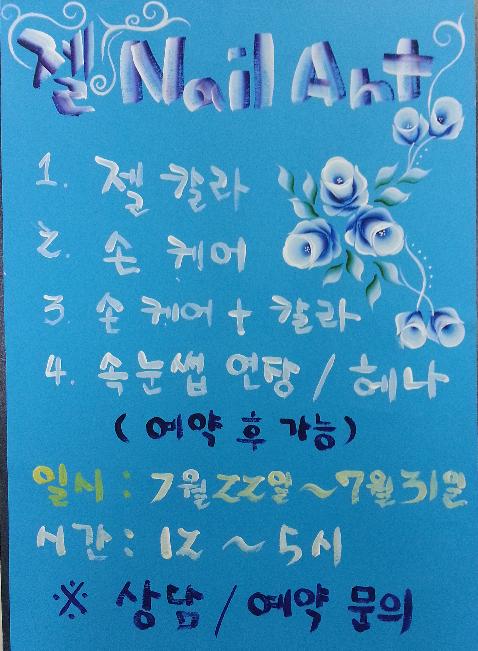 젤 Nail Art
1. 젤 칼라
2. 손 케어
3. 손 케어 + 칼라
4. 속눈썹 연장 / 헤나
( 예약 후 가능)
일시 : 7월22일 ~7월31일
시간 : 12 ~5시
※ 상담 / 예약 문의